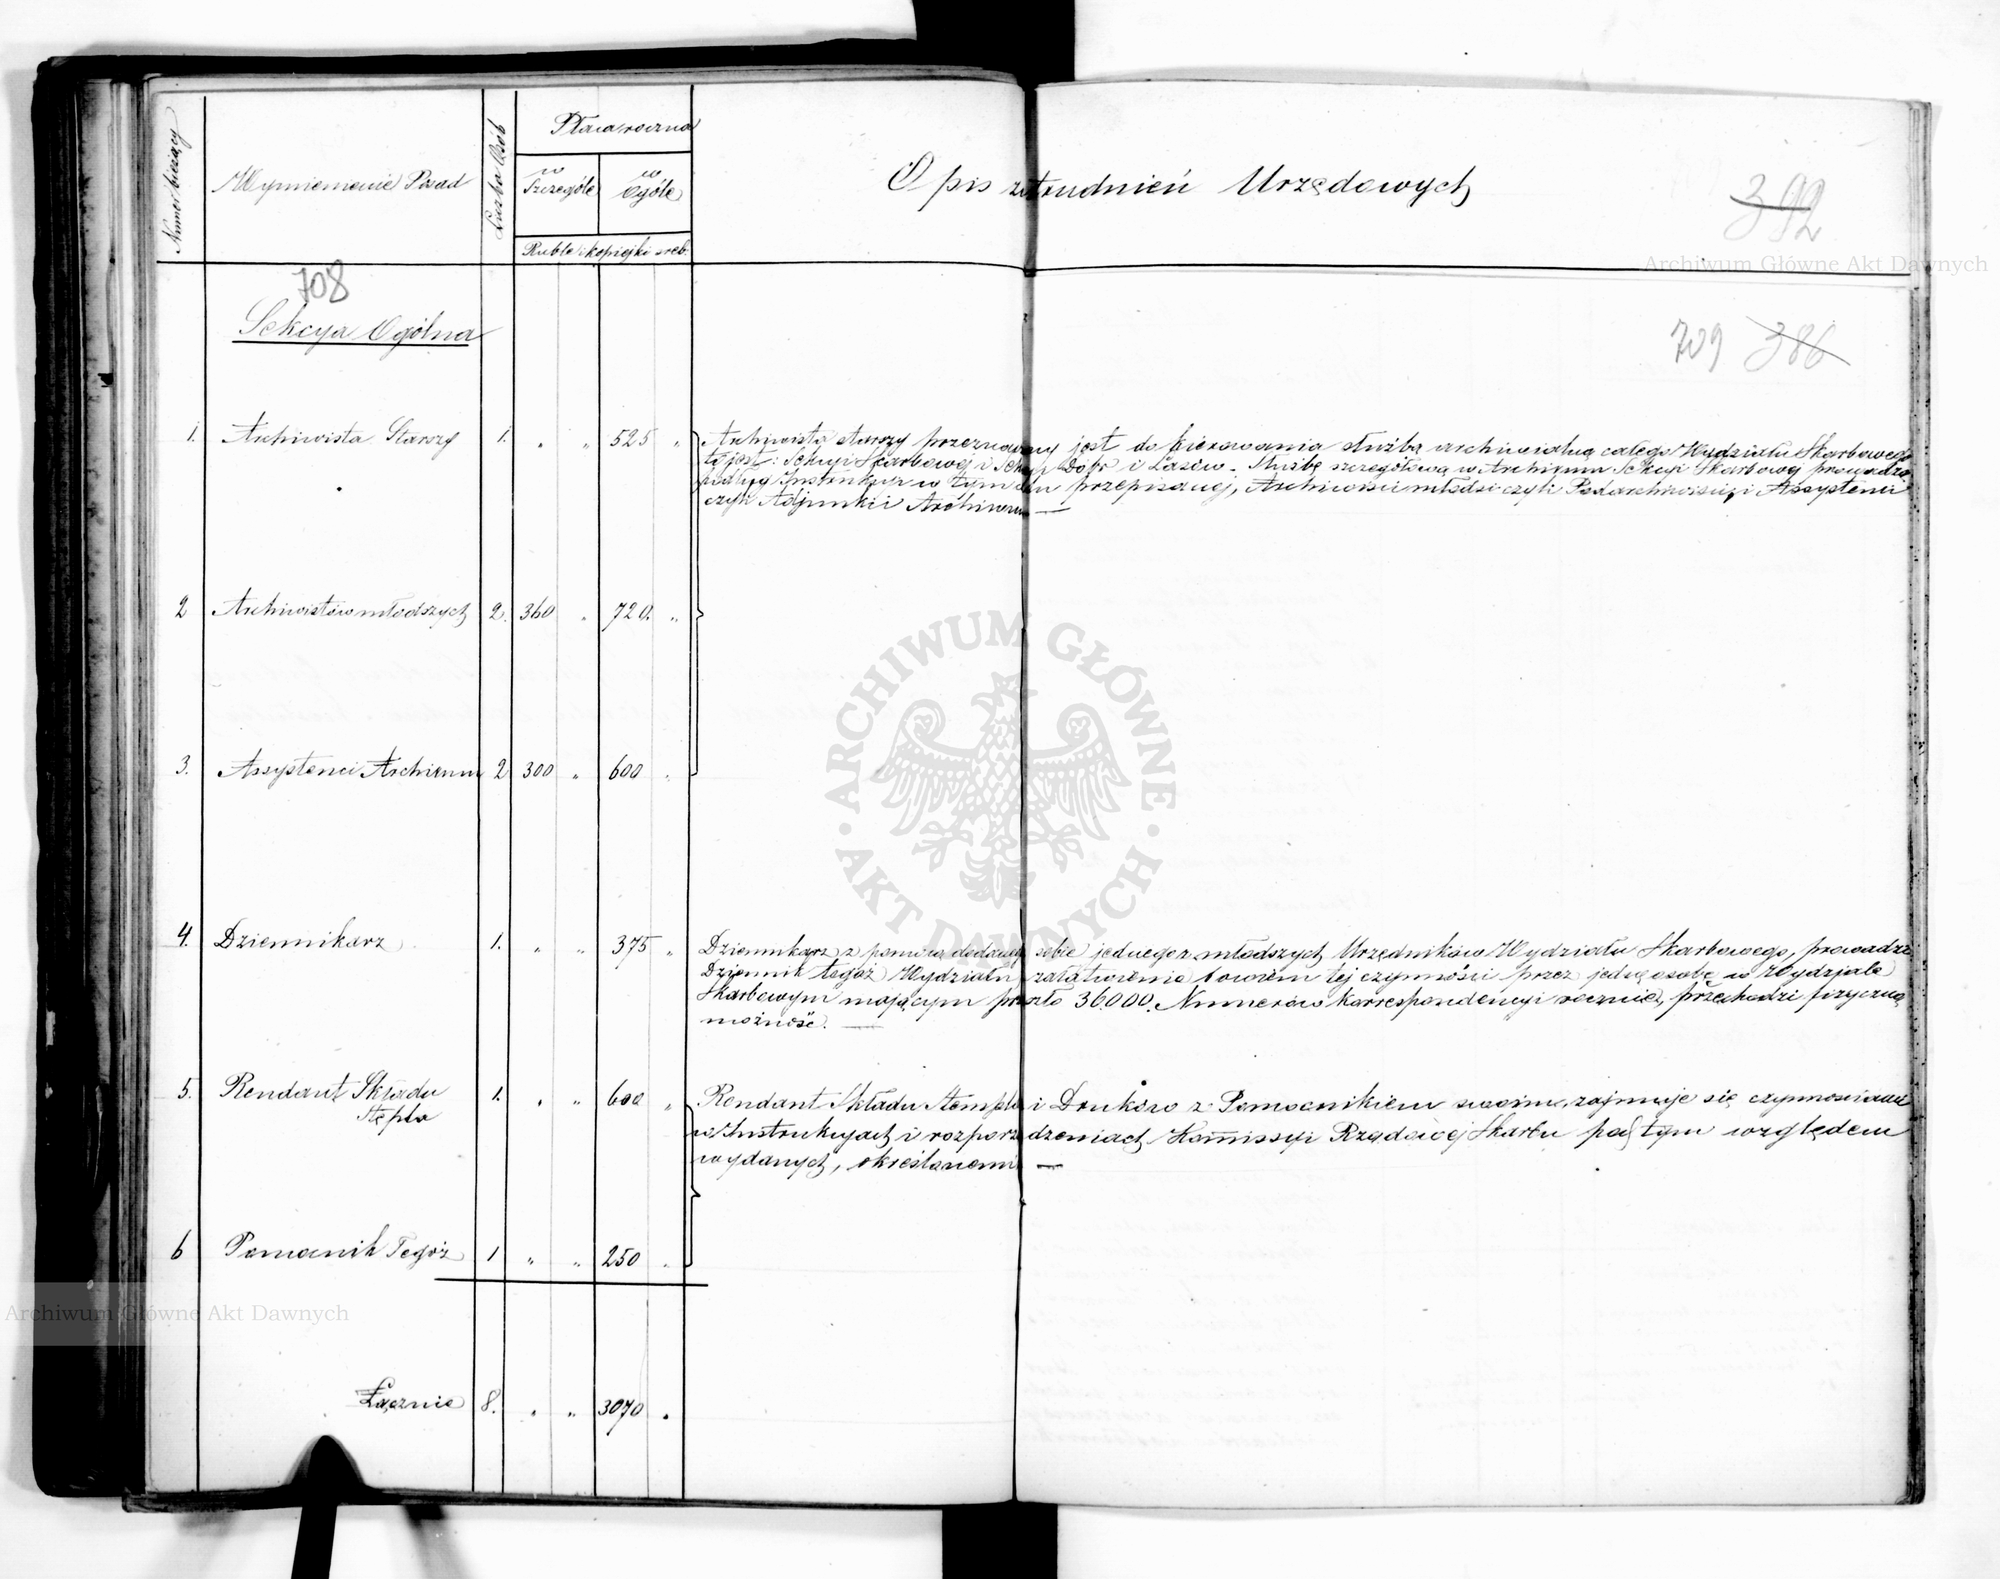 Numer bieżący
Wymienienie Posad
Liczba Osób
Płaca roczna
w Szczególe
w Ogóle
Ruble i kopiejki sreb.
Opis zatrudnień Urzędowych
392
708
709 386
Sekcya Ogólna
1. Archiwista Starszy 1. „ „ 525 „
Archiwista starszy przeznaczony jest do kierowania służbą archiwialną całego Wydziału Skarbowego
to jest: Sekcyi Skarbowej i Sekcyi Dóbr i Lasów. Służbę szczegółową w Archiwum Sekcyi Skarbowej prowadzą
podług Instrukcyi w tym celu przepisanej, Archiwiści młodsi czyli Podarchiwiści, i Assystenci
czyli Adjunkci Archiwum —
2 Archiwistów młodszych 2. 360 „ 720. „
3. Assystenci Archiwum 2 300 „ 600 „
4. Dziennikarz 1. „ „ 375 „
Dziennikarz z pomocą dodanego sobie jednego z młodszych Urzędników Wydziału Skarbowego, prowadzi
Dziennik tegoż Wydziału, załatwienie bowiem tej czynności przez jedną osobę w Wydziale
Skarbowym mającym przeszło 36000. Numerów korrespondencyi rocznie, przechodzi fizyczną
możność. —
5. Rendant Składu 1. „ „ 600 „
Stępla
Rendant Składu Stempla i Druków z Pomocnikiem swoim, zajmuje się czynnościami
w Instrukcyach i rozporządzeniach Kommissyi Rządowej Skarbu pod tym względem
wydanych, określonemi —
6 Pomocnik Tegoż 1 „ „ 250 „
Łącznie 8. „ „ 3070 „
ARCHIWUM GŁÓWNE AKT DAWNYCH
Archiwum Główne Akt Dawnych
Archiwum Główne Akt Dawnych